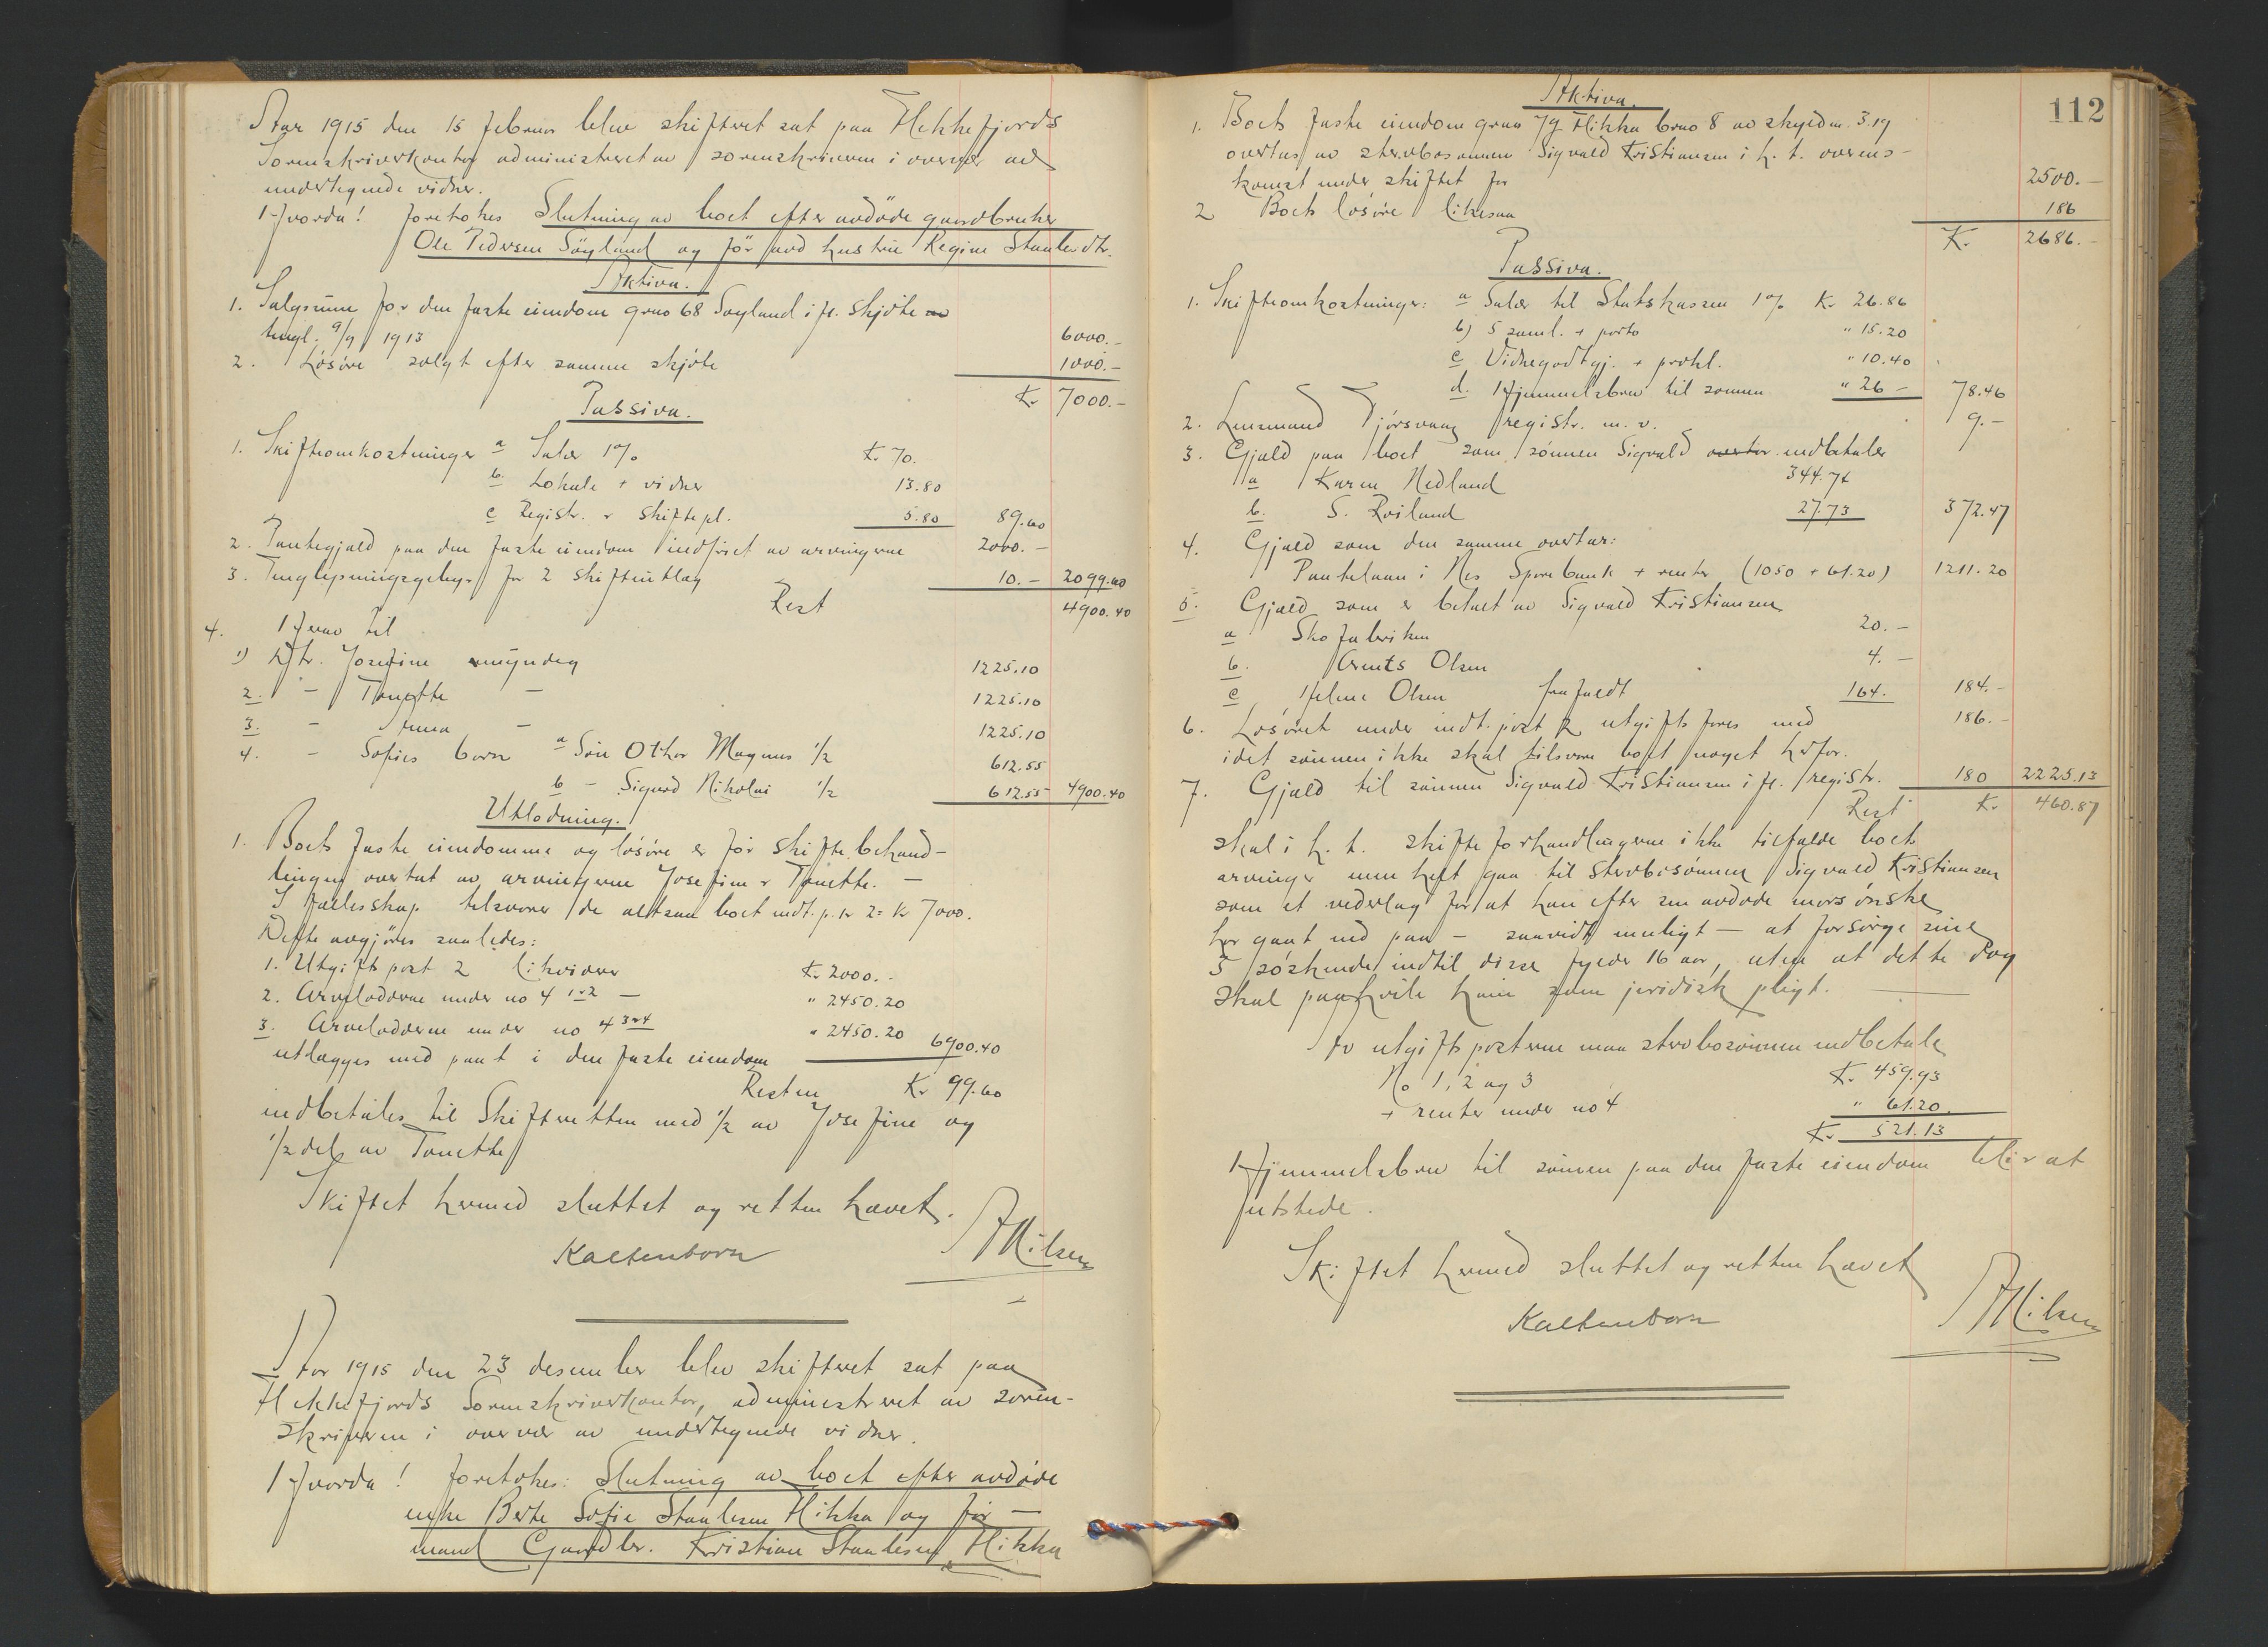 Aar 1915 den 15 februar blev skifteret sat paa Flekkefjords
Sorenskriverkontor administreret av sorenskriveren i overvær av
undertegnede vidner.
Hvorda! foretokes Slutning av boet efter avdöde gaardbruker
Ole Pedersen Söyland og før avd hustru Regine Staalesdtr.
Aktiva.
1. Salgssum for den faste eiendom gno 68 Søyland i fl. skjöte
tingl. 9/9 1913 6000.-
2. Lösöre solgt efter samme skjöte 1000.-
Kr 7000.-
Passiva.
1. Skifteomkostninger a Salær 1% Kr. 70.
b. Lokale + vidner 13.80
c Registr. + skiftepl. 5.80 89.60
2. Pantegjæld paa den faste eiendom indfriet av arvingerne 2000.-
3. Tinglysningsgebyr for 2 skifteutlæg 10.- 2099.60
Rest 4900.40
4. Arv til
1) Dtr. Josefine myndig 1225.10
2. - Tonette - 1225.10
3. - Anna - 1225.10
4. - Sofies born a Sön Othar Magnus 1/2 612.55
b - Sigurd Nikolai 1/2 612.55 4900.40
Utlodning.
1. Boets faste eiendomme og lösöre er för skiftebehand-
lingen overtat av arvingerne Josefine & Tonette. -
I fællesskap tilsvarer de altsaa boet indt. p. 1 & 2 = kr 7000.
Dette avgjöres saaledes:
1. Utgiftspost 2 likvideres Kr. 2000.-
2. Arvelodderne under no 4 1&2 - " 2450.20
3. Arvelodderne under no 4 3&4 " 2450.20 6900.40
utlægges med pant i den faste eiendom
Resten Kr 99.60
indbetales til Skifteretten med 1/2 av Josefine og
1/2 del av Tonette
Skiftet hermed sluttet og retten hævet.
Kaltenborn ANilsen
Aar 1915 den 23 desember blev skifteret sat paa
Flekkefjords Sorenskriverkontor, administreret av soren-
skriveren i overvær av undertegnede vidner.
Hvorda! foretokes: Slutning av boet efter avdöde
enke Berte Sofie Staalesen Flikka og för -
mand Gaardbr. Kristian Staalesen Flikka
112
Aktiva.
1. Boets faste eiendom gno 79 Flikka bno 8 av skyldm. 3.19
overtas av stervbosönnen Sigvald Kristiansen i h. t. overens-
komst under skiftet for 2500.-
2 Boets lösöre likesaa 186
Kr. 2686.-
Passiva.
1. Skifteomkostninger: a Salær til Statskassen 1% Kr 26.86
b) 5 saml. + porto " 15.20
c Vidnegodtgj. + prokl. " 10.40
d. Hjemmelsbrev til sønnen " 26 - 78.46
2. Lensmand Tjörsvaag registr. m. v. 9.-
3. Gjæld paa boet som sönnen Sigvald overtar indbetaler
a Karen Hedland 344.74
b. S. Roiland 27.73 372.47
4. Gjæld som den samme overtar:
Pantelaan i Nes Sparebank + renter (1050 + 61.20) 1211.20
5. Gjæld som er betalt av Sigvald Kristiansen
a Skofabriken 20.-
b. Arents Olsen 4.-
c Helene Olsen frafaldt 164. 184.-
6. Lösöret under indt. post 2 utgiftsföres med 186.-
idet sönnen ikke skal tilsvare boet noget herfor.
7. Gjæld til sönnen Sigvald Kristiansen i fl. registr. 180 2225.13
Rest Kr. 460.87
skal i h. t. skifteforhandlingerne ikke tilfalde boets
arvinger men helt gaa til stervbosönnen Sigvald Kristiansen
som et vederlag for at han efter sin avdöde mors önske
har gaat ind paa - saavidt muligt - at forsörge sine
5 söskende indtil disse fylder 16 aar, uten at dette dog
skal paahvile ham som juridisk pligt.
Av utgiftsposterne maa stervbosönnen indbetale
No 1, 2 og 3 Kr. 459.93
+ renter under no 4 " 61.20
Kr. 521.13
Hjemmelsbrev til sönnen paa den faste eiendom blir at
utstede.
Skiftet hermed sluttet og retten hævet
Kaltenborn ANilsen